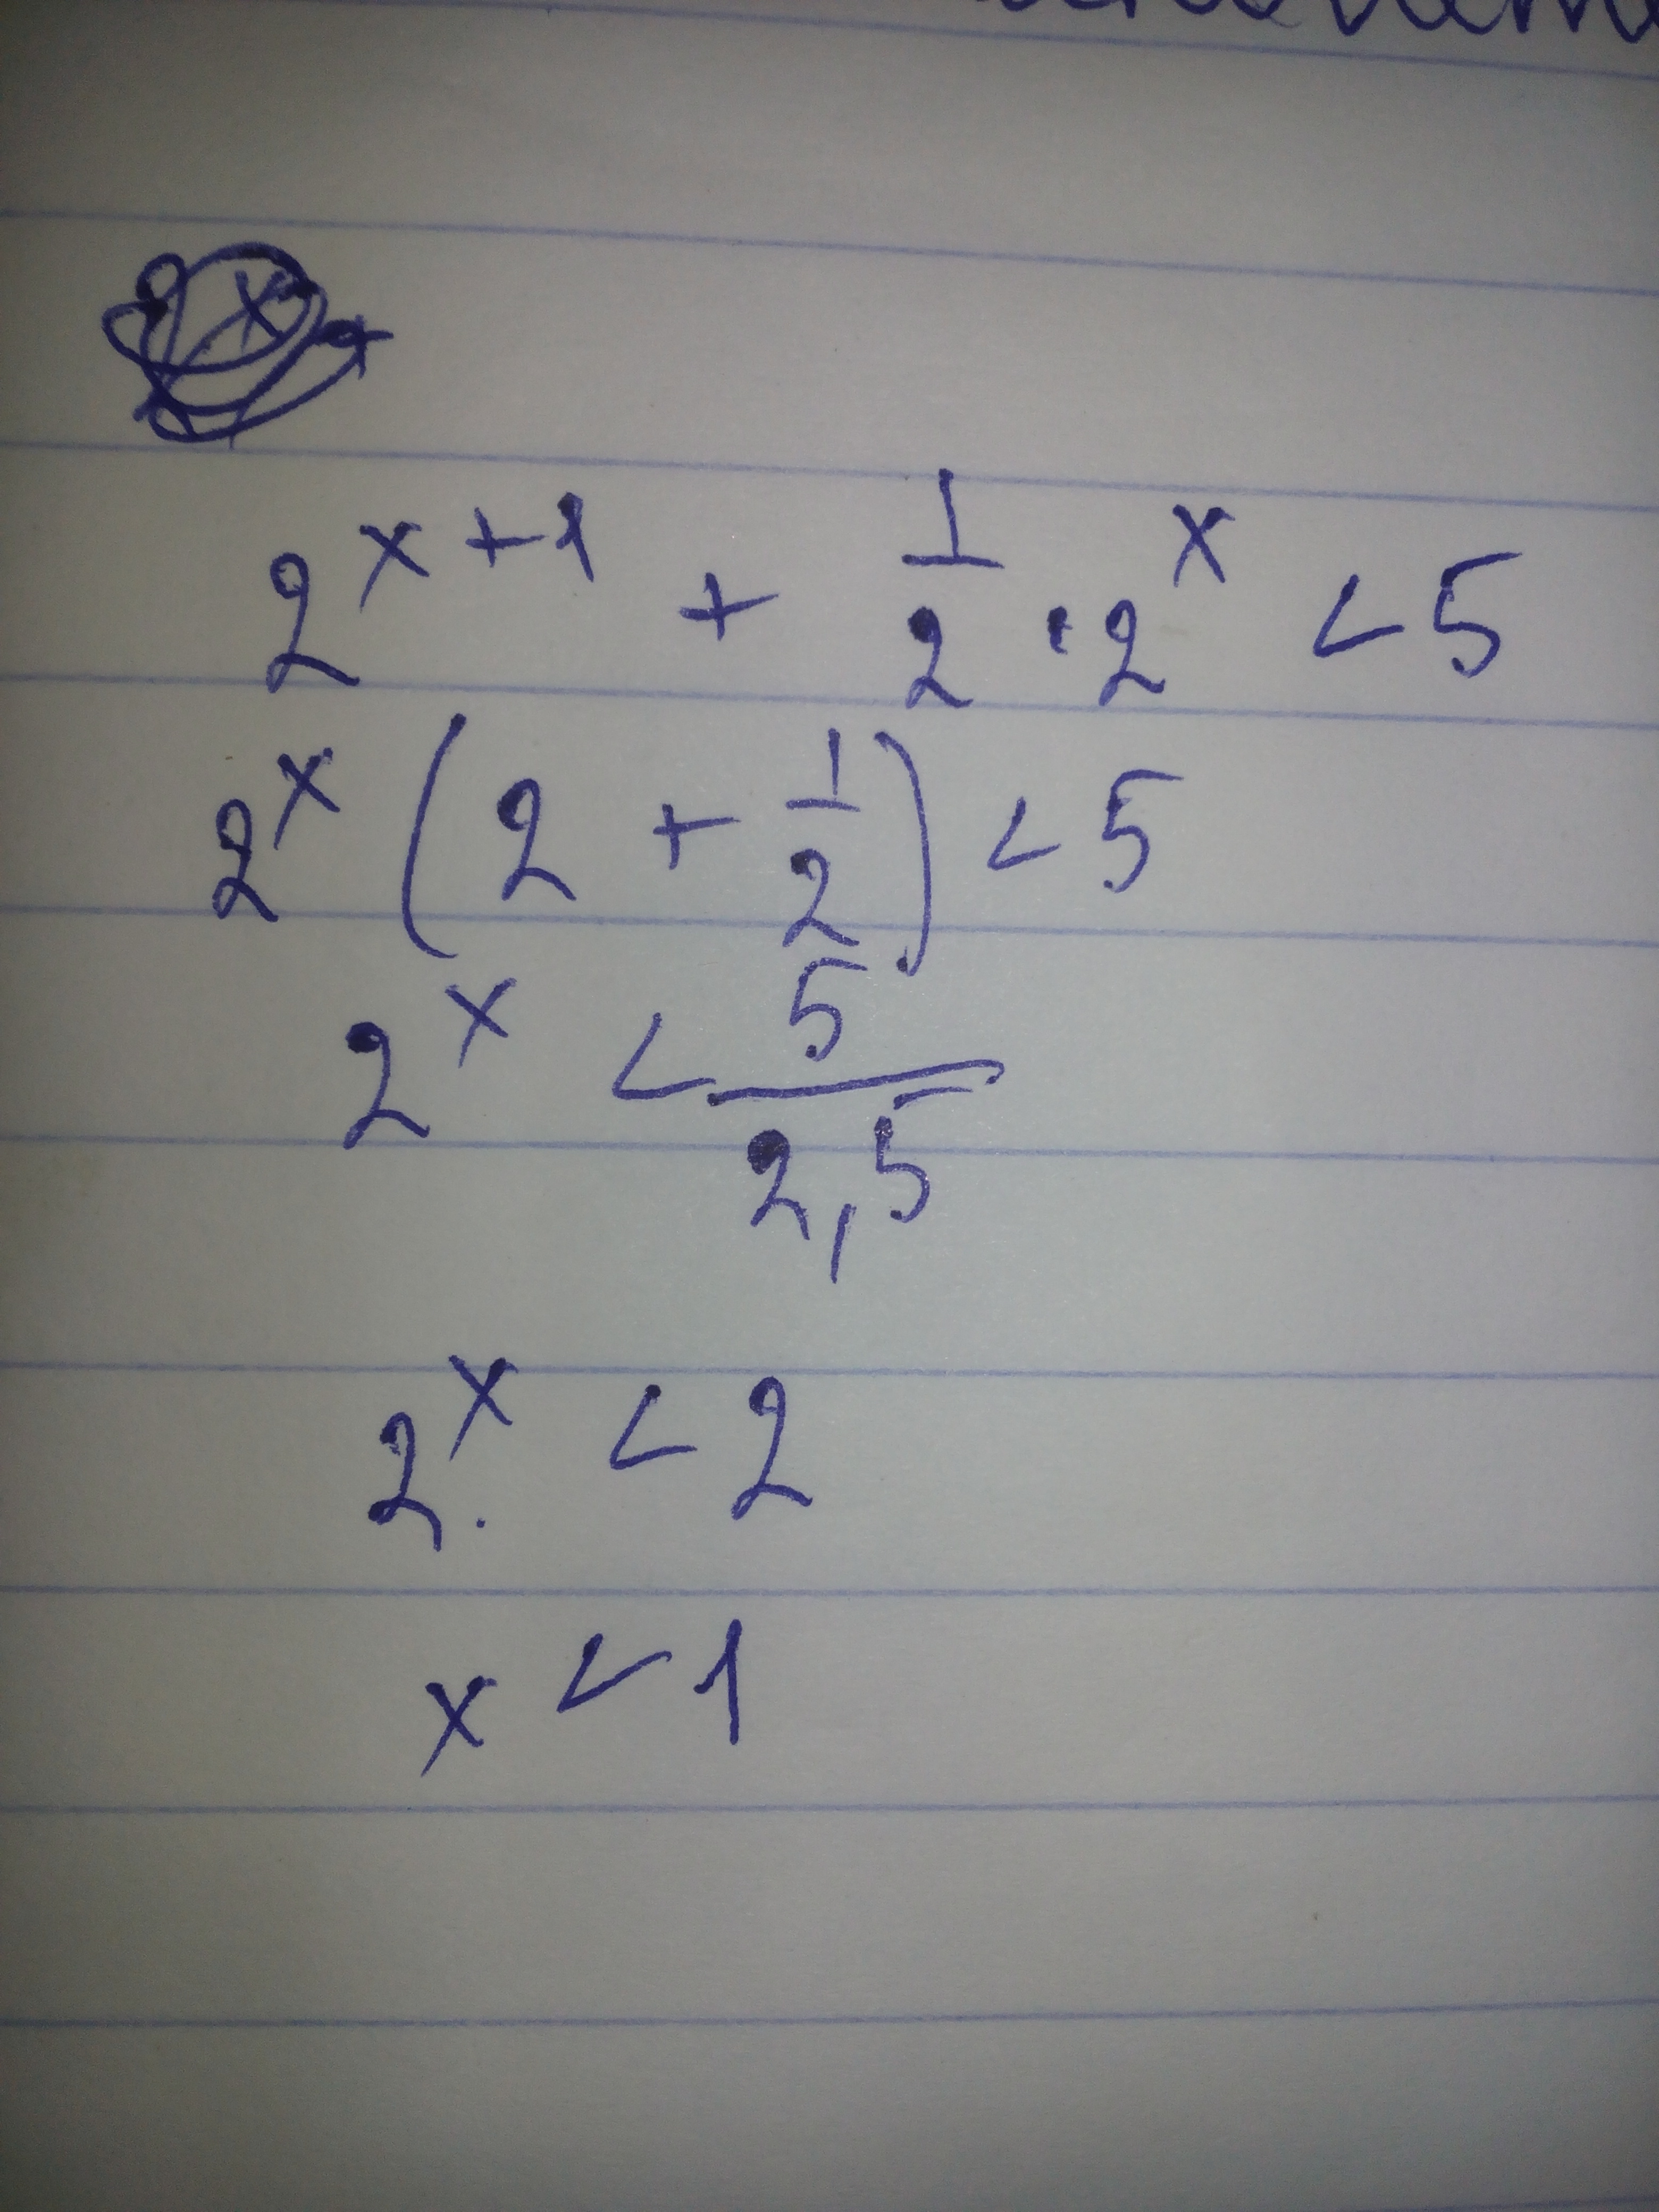 2^{x+1} + \frac{1}{2} \cdot 2^x < 5
2^x \left( 2 + \frac{1}{2} \right) < 5
2^x < \frac{5}{2,5}
2^x < 2
x < 1